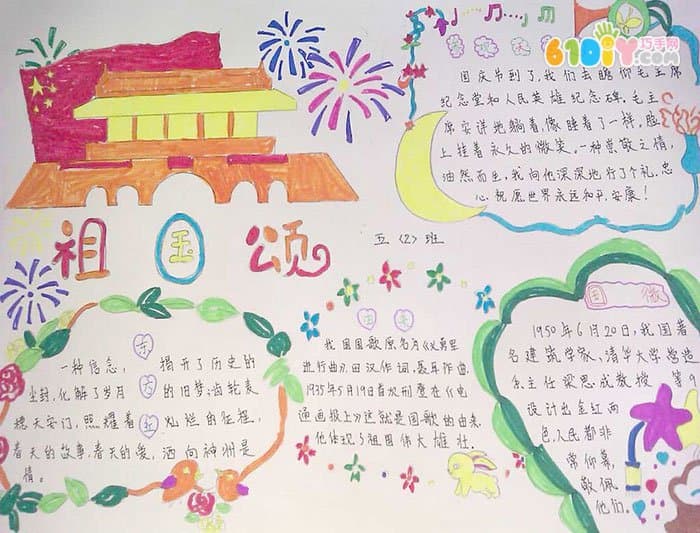 祖国颂
五〈2〉班
61DIY巧手网
国庆节到了,我们去瞻仰毛主席
纪念堂和人民英雄纪念碑。毛主
席安详地躺着,像睡着了一样。脸
上挂着永久的微笑。一种崇敬之情,
油然而生,我向他深深地行了个礼,忠
心祝愿世界永远和平、安康!
东方红
一种信念, 揭开了历史的
尘封,化解了岁月 的旧梦;齿轮麦
穗天安门,照耀着 灿烂的征程,
春天的故事,春天的爱,洒向神州是
情。
国歌
我国国歌原名为《义勇军
进行曲》,田汉作词,聂耳作曲,
1935年5月19日首次刊登在《电
通画报上》这就是国歌的由来,
他体现了祖国伟大雄壮。
国徽
1950年6月20日,我国著
名建筑学家、清华大学营造
系主任梁思成教授 等
设计出金红两
色,人民都非
常仰慕,
敬佩
他们。